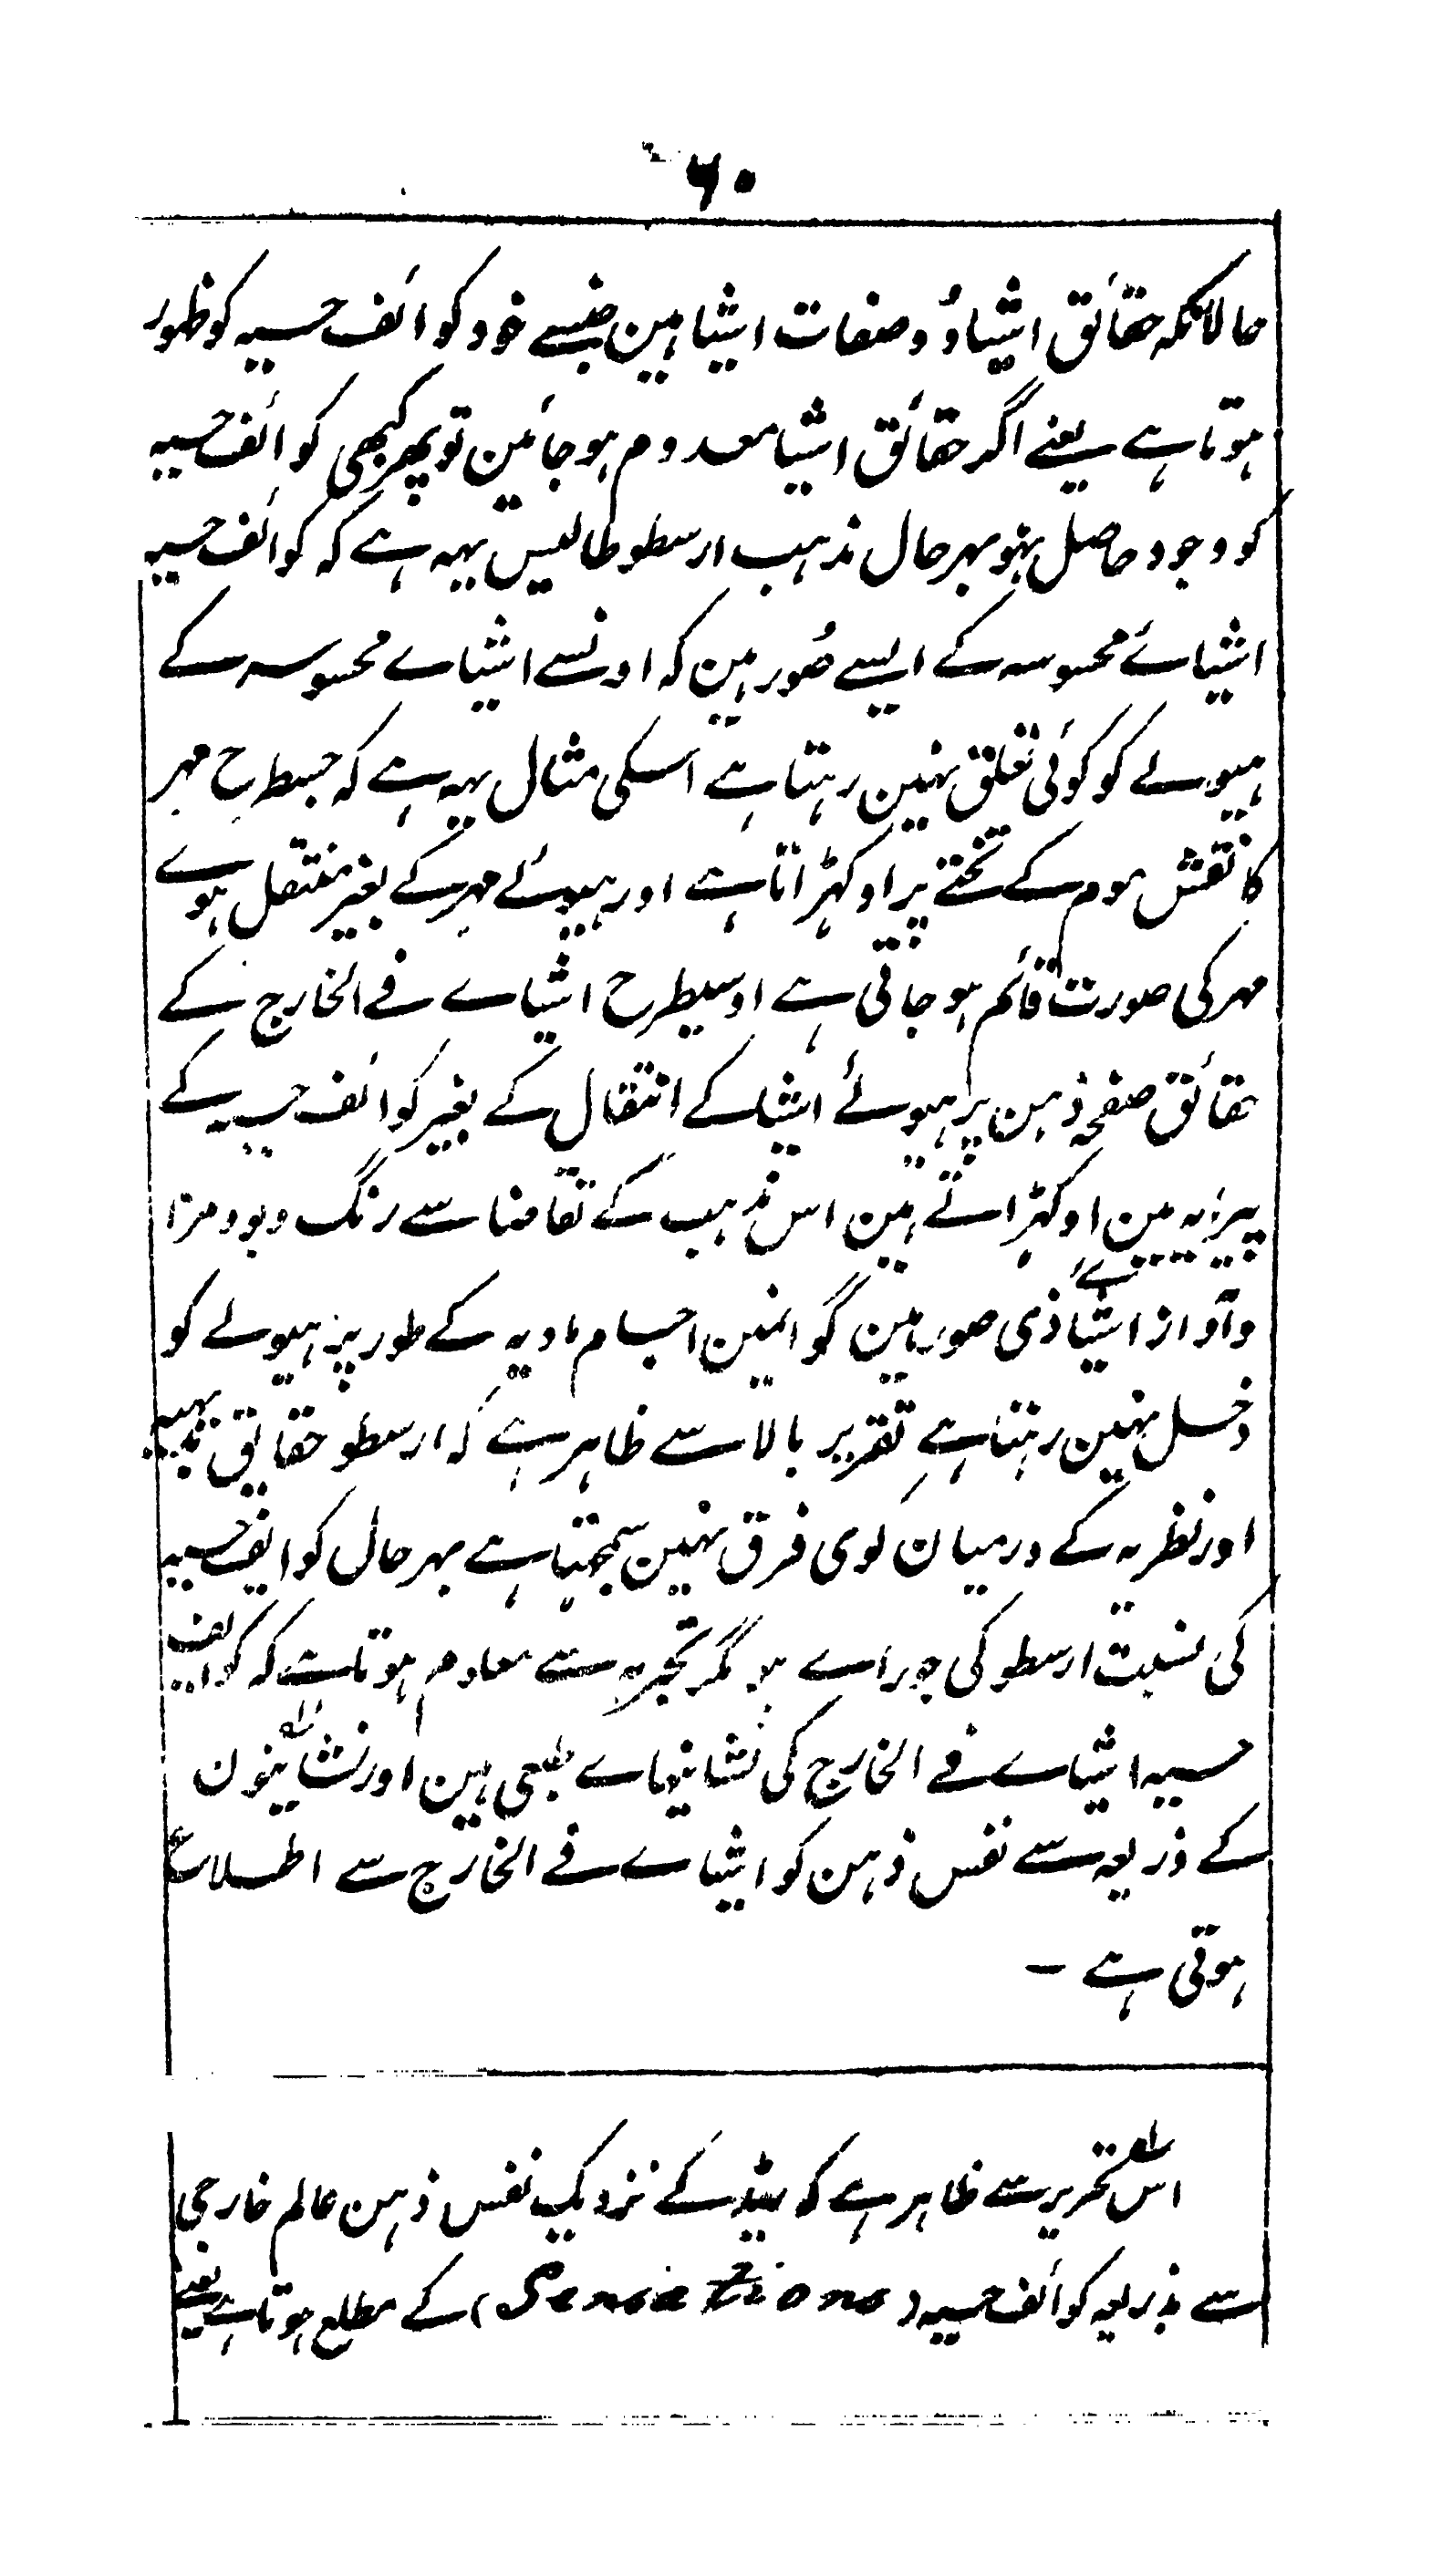 ۶۰
حالانکہ حقائق اشیاؤ وصفات اشیا ہین جنسے خود کوائف حسیہ کو ظہور
ہوتا ہے یعنے اگر حقائق اشیا معدوم ہو جائین تو پھر کبھی کوائف حسیہ
کو وجود حاصل نہو بہرحال مذہب ارسطوطالیس یہہ ہے کہ کوائف حسیہ
اشیائے محسوسہ کے ایسے صُور ہین کہ اونسے اشیاے محسوسہ کے
ہیولے کو کوئی تعلق نہین رہتا ہے اسکی مثال یہہ ہے کہ جسطرح مہر
کا نقش موم کے تختے پر اوکھڑ اتا ہے اور ہیولئے مہر کے بغیر منتقل ہوے
مہر کی صورت قائم ہو جاتی ہے اوسیطرح اشیاے فے الخارج کے
حقائق صفحہ ذہن پر ہیولئے اشیا کے انتقال کے بغیر کوائف حسیہ کے
پیرایہ مین اوکھڑ اتے ہین اس مذہب کے تقاضا سے رنگ و بو و مزا
وآواز اشیائے ذی صور ہین گو انمین اجسام مادیہ کے طور پر ہیولے کو
دخل نہین رہتا ہے تقریر بالا سے ظاہر ہے کہ ارسطو حقایق بدیہیہ
اور نظریہ کے درمیان کوی فرق نہین سمجہتا ہے بہرحال کوایف حسیہ
کی نسبت ارسطو کی جو راے ہو مگر تجربہ سے معلوم ہوتا ہے کہ کوایف
حسیہ اشیاے فے الخارج کی نشانیہاے طبعی ہین اور نشانیون
کے ذریعہ سے نفس ذہن کو اشیاے فے الخارج سے اطلاع
ہوتی ہے ۔
اس تحریر سے ظاہر ہے کہ ریڈ کے نزدیک نفس ذہن عالم خارجی
سے بذریعہ کوائف حسیہ (Sensations) کے مطلع ہوتا ہے یعنے